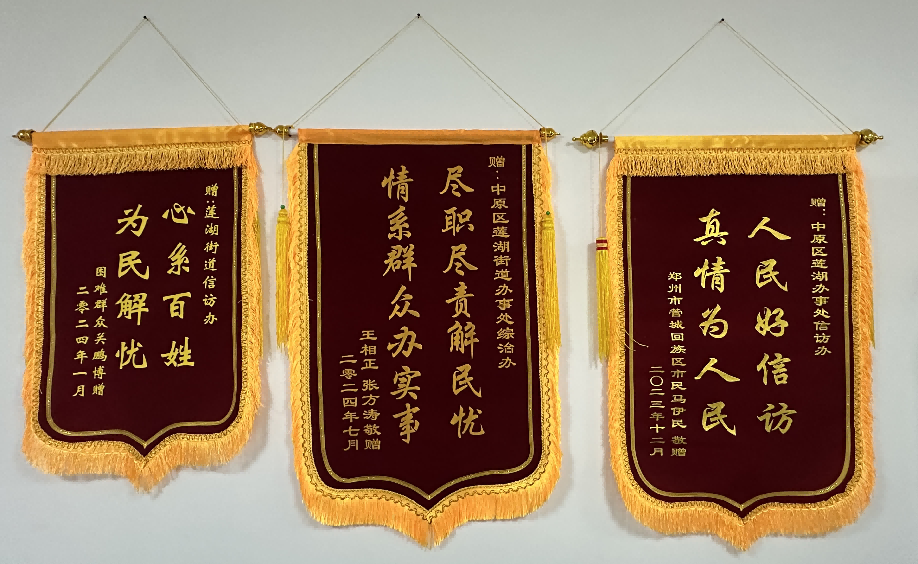 赠:莲湖街道信访办
心系百姓
为民解忧
困难群众关鹏博赠
二零二四年一月
赠:中原区莲湖街道办事处综治办
尽职尽责解民忧
情系群众办实事
王相正 张方涛敬赠
二零二四年七月
赠:中原区莲湖办事处信访办
人民好信访
真情为人民
郑州市管城回族区市民马伊民 敬赠
二〇二三年十二月